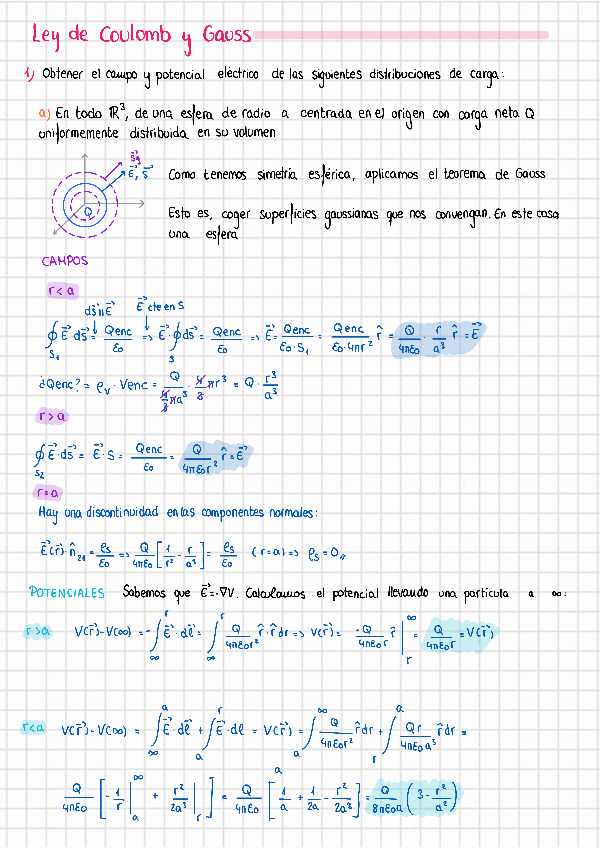 Ley de Coulomb y Gauss
1) Obtener el campo y potencial eléctrico de las siguientes distribuciones de carga:
a) En todo ℝ³, de una esfera de radio a centrada en el origen con carga neta Q
uniformemente distribuida en su volumen
S⃗g
E⃗, S⃗
Q
Como tenemos simetría esférica, aplicamos el teorema de Gauss
Esto es, coger superficies gaussianas que nos convengan. En este caso
una esfera
CAMPOS
r<a
ds⃗ıı E⃗ E⃗ cte en S
∮_S₁ E⃗ ds⃗ = Qenc/ε₀ => E⃗ ∮_S ds⃗ = Qenc/ε₀ => E⃗ = Qenc/(ε₀·S₁) = Qenc/(ε₀·4πr²) r̂ = Q/(4πε₀) · r/a³ r̂ = E⃗
¿Qenc? = ρv · Venc = Q/(4/3 πa³) · 4/3 πr³ = Q · r³/a³
r>a
∮_S₂ E⃗·ds⃗ = E⃗·S = Qenc/ε₀ = Q/(4πε₀r²) r̂ = E⃗
r=a
Hay una discontinuidad en las componentes normales:
E⃗(r⃗)·n̂₂₁ = ρs/ε₀ => Q/(4πε₀) [1/r² - r/a³] = ρs/ε₀ (r=a) => ρs = 0,,
POTENCIALES Sabemos que E⃗=-∇V. Calculamos el potencial llevando una partícula a ∞:
r>a V(r⃗)-V(∞) = -∫_∞^r E⃗·dl⃗ = ∫_∞^r Q/(4πε₀r²) r̂·r̂ dr => V(r⃗) = -Q/(4πε₀r) r̂ |_r^∞ = Q/(4πε₀r) = V(r⃗)
r<a V(r⃗)-V(∞) = ∫_∞^a E⃗·dl⃗ + ∫_a^r E⃗·dl = V(r⃗) = ∫_a^∞ Q/(4πε₀r²) r̂ dr + ∫_r^a Qr/(4πε₀a³) r̂ dr =
Q/(4πε₀) [-1/r |_a^∞ + r²/2a³ |_r^a] = Q/(4πε₀) [1/a + 1/2a - r²/2a³] = Q/(8πε₀a) (3 - r²/a²)